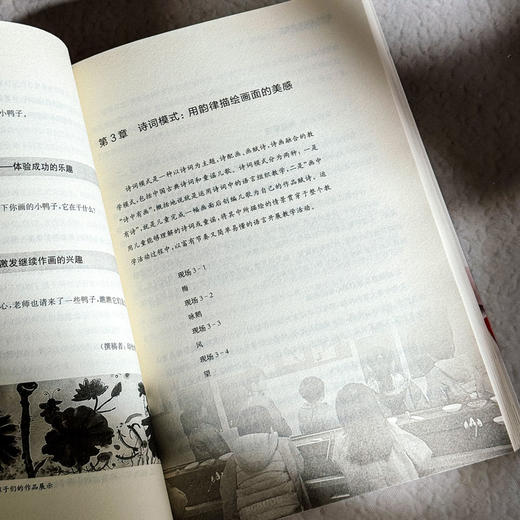 小鸭子。
体验成功的乐趣
下你画的小鸭子，它在干什么？
激发继续作画的兴趣
心，老师也请来了一些鸭子，跳跳
（撰稿者：
子们的作品展示
第3章 诗词模式：用韵律描绘画面的美感
诗词模式是一种以诗词为主题，诗配画、画赋诗，诗画融合的教
学模式，包括中国古典诗词和童谣儿歌。诗词模式分为两种：一是
“诗中有画”，概括地说就是运用诗词中的语言组织教学，二是“画中
有诗”，就是儿童完成一幅画面后创编儿歌为自己的作品赋诗。运
用儿童能够理解的诗词或童谣，将其中所描绘的情景贯穿于整个教
学活动过程中，以富有节奏又简单易懂的语言开展教学活动。
现场3-1
梅
现场3-2
咏鹅
现场3-3
风
现场3-4
望